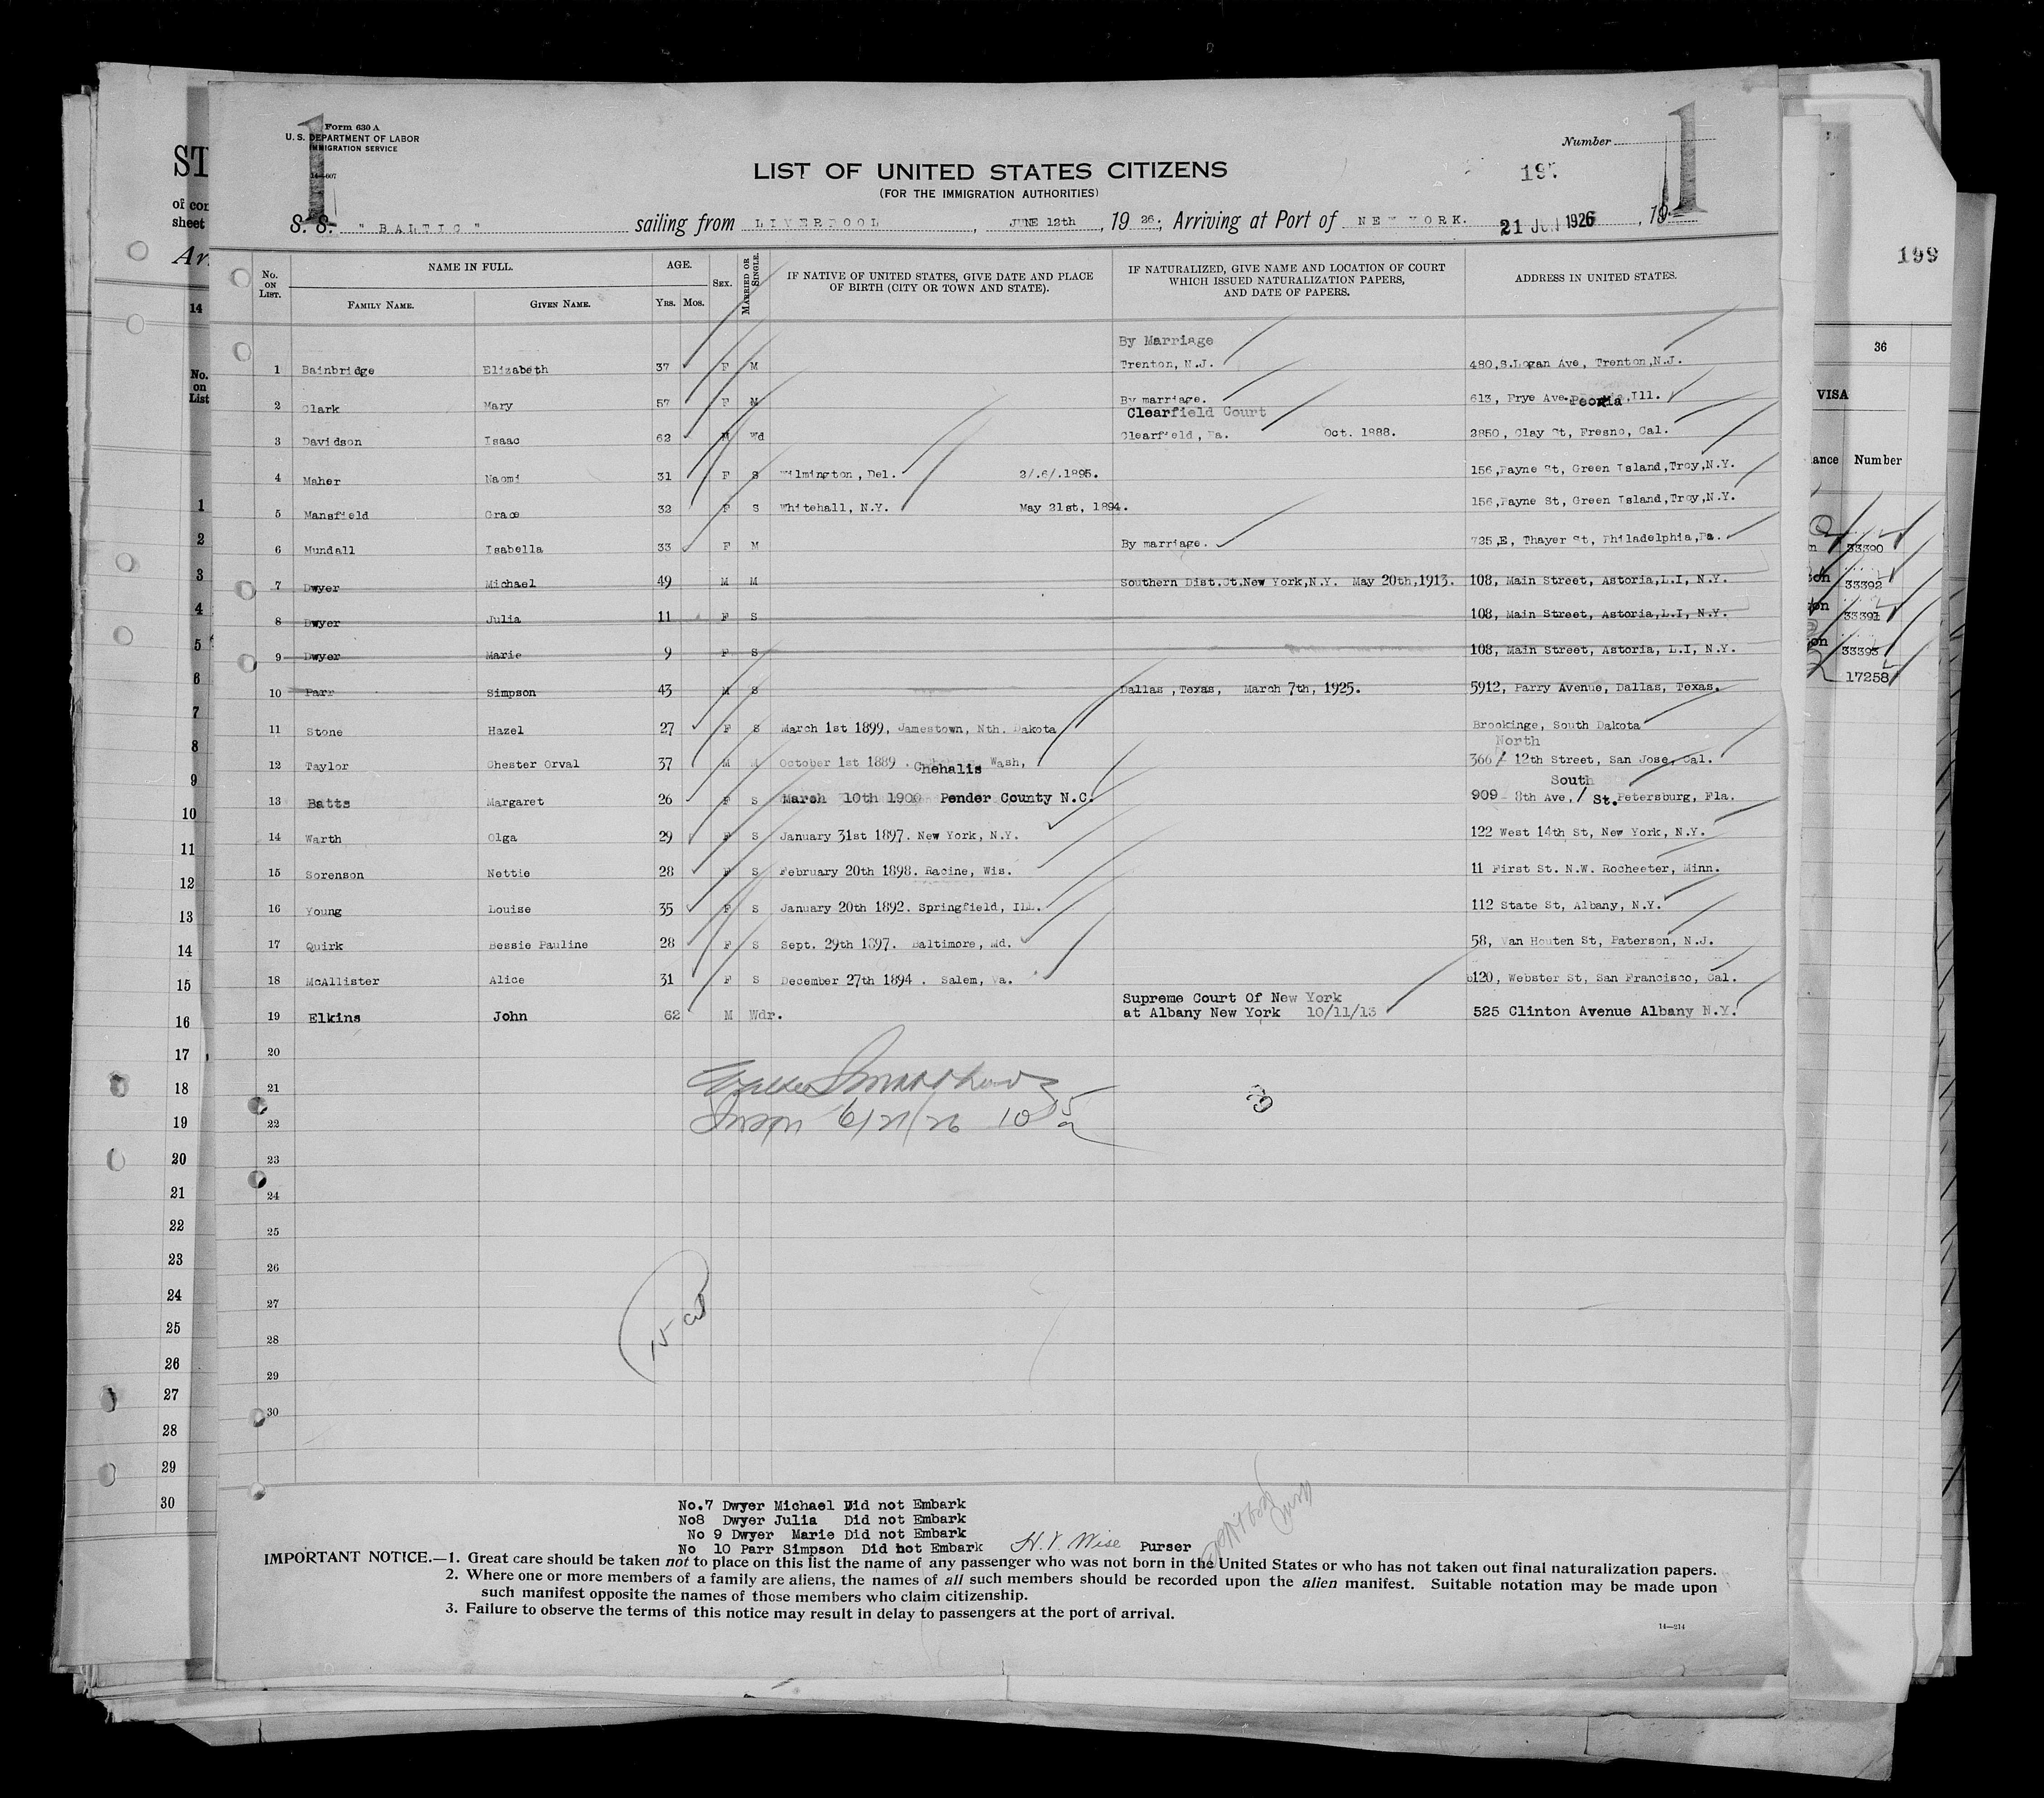 Form 630 A
U. S. DEPARTMENT OF LABOR
IMMIGRATION SERVICE
1
Number
1
LIST OF UNITED STATES CITIZENS
(FOR THE IMMIGRATION AUTHORITIES)
S. S. "BALTIC" sailing from LIVERPOOL, JUNE 12th, 1926; Arriving at Port of NEW YORK. 21 JUN 1926, 19
No. ON LIST. NAME IN FULL. FAMILY NAME. GIVEN NAME. AGE. YRS. MOS. SEX. MARRIED OR SINGLE. IF NATIVE OF UNITED STATES, GIVE DATE AND PLACE OF BIRTH (CITY OR TOWN AND STATE). IF NATURALIZED, GIVE NAME AND LOCATION OF COURT WHICH ISSUED NATURALIZATION PAPERS, AND DATE OF PAPERS. ADDRESS IN UNITED STATES.
By Marriage
1 Bainbridge Elizabeth 37 F M Trenton, N.J. 480,S.Logan Ave, Trenton,N.J.
2 Clark Mary 57 F M By marriage. 613, Frye Ave. Peoria, Ill.
Clearfield Court
3 Davidson Isaac 62 M Wd Clearfield, Pa. Oct. 1888. 2850, Clay St, Fresno, Cal.
4 Maher Naomi 31 F S Wilmington, Del. 2/.6/.1895. 156,Payne St, Green Island,Troy,N.Y.
5 Mansfield Grace 32 F S Whitehall, N.Y. May 21st, 1894. 156,Payne St, Green Island,Troy,N.Y.
6 Mundall Isabella 33 F M By marriage. 725,E, Thayer St, Philadelphia,Pa.
7 Dwyer Michael 49 M M Southern Dist.Ct.New York,N.Y. May 20th,1913. 108, Main Street, Astoria,L.I, N.Y.
8 Dwyer Julia 11 F S 108, Main Street, Astoria,L.I, N.Y.
9 Dwyer Marie 9 F S 108, Main Street, Astoria, L.I, N.Y.
10 Parr Simpson 43 M S Dallas ,Texas, March 7th, 1925. 5912, Parry Avenue, Dallas, Texas.
11 Stone Hazel 27 F S March 1st 1899, Jamestown, Nth. Dakota Brookinge, South Dakota
North
12 Taylor Chester Orval 37 M M October 1st 1889 . Chehalis Wash, 366 / 12th Street, San Jose, Cal.
South
13 Batts Margaret 26 F S March 10th 1900 Pender County N.C. 909 8th Ave, / St.Petersburg, Fla.
14 Warth Olga 29 F S January 31st 1897. New York, N.Y. 122 West 14th St, New York, N.Y.
15 Sorenson Nettie 28 F S February 20th 1898. Racine, Wis. 11 First St. N.W. Rochester, Minn.
16 Young Louise 35 F S January 20th 1892. Springfield, ILL. 112 State St, Albany, N.Y.
17 Quirk Bessie Pauline 28 F S Sept. 29th 1897. Baltimore, Md. 58, Van Houten St, Paterson, N.J.
18 McAllister Alice 31 F S December 27th 1894 . Salem, Va. 6120, Webster St, San Francisco, Cal.
Supreme Court Of New York
19 Elkins John 62 M Wdr. at Albany New York 10/11/13 525 Clinton Avenue Albany N.Y.
20
21
22 6/21/26
23
24
25
26
27
28
29
30
No.7 Dwyer Michael Did not Embark
No8 Dwyer Julia Did not Embark
No 9 Dwyer Marie Did not Embark
No 10 Parr Simpson Did not Embark H.V. Wise Purser
IMPORTANT NOTICE.—1. Great care should be taken not to place on this list the name of any passenger who was not born in the United States or who has not taken out final naturalization papers.
2. Where one or more members of a family are aliens, the names of all such members should be recorded upon the alien manifest. Suitable notation may be made upon
such manifest opposite the names of those members who claim citizenship.
3. Failure to observe the terms of this notice may result in delay to passengers at the port of arrival.
14—214
ST
of cor
sheet
Ar
14
No. on List
1
2
3
4
5
6
7
8
9
10
11
12
13
14
15
16
17
18
19
20
21
22
23
24
25
26
27
28
29
30
199
36
VISA
ance Number
33390
33392
33391
33393
17258